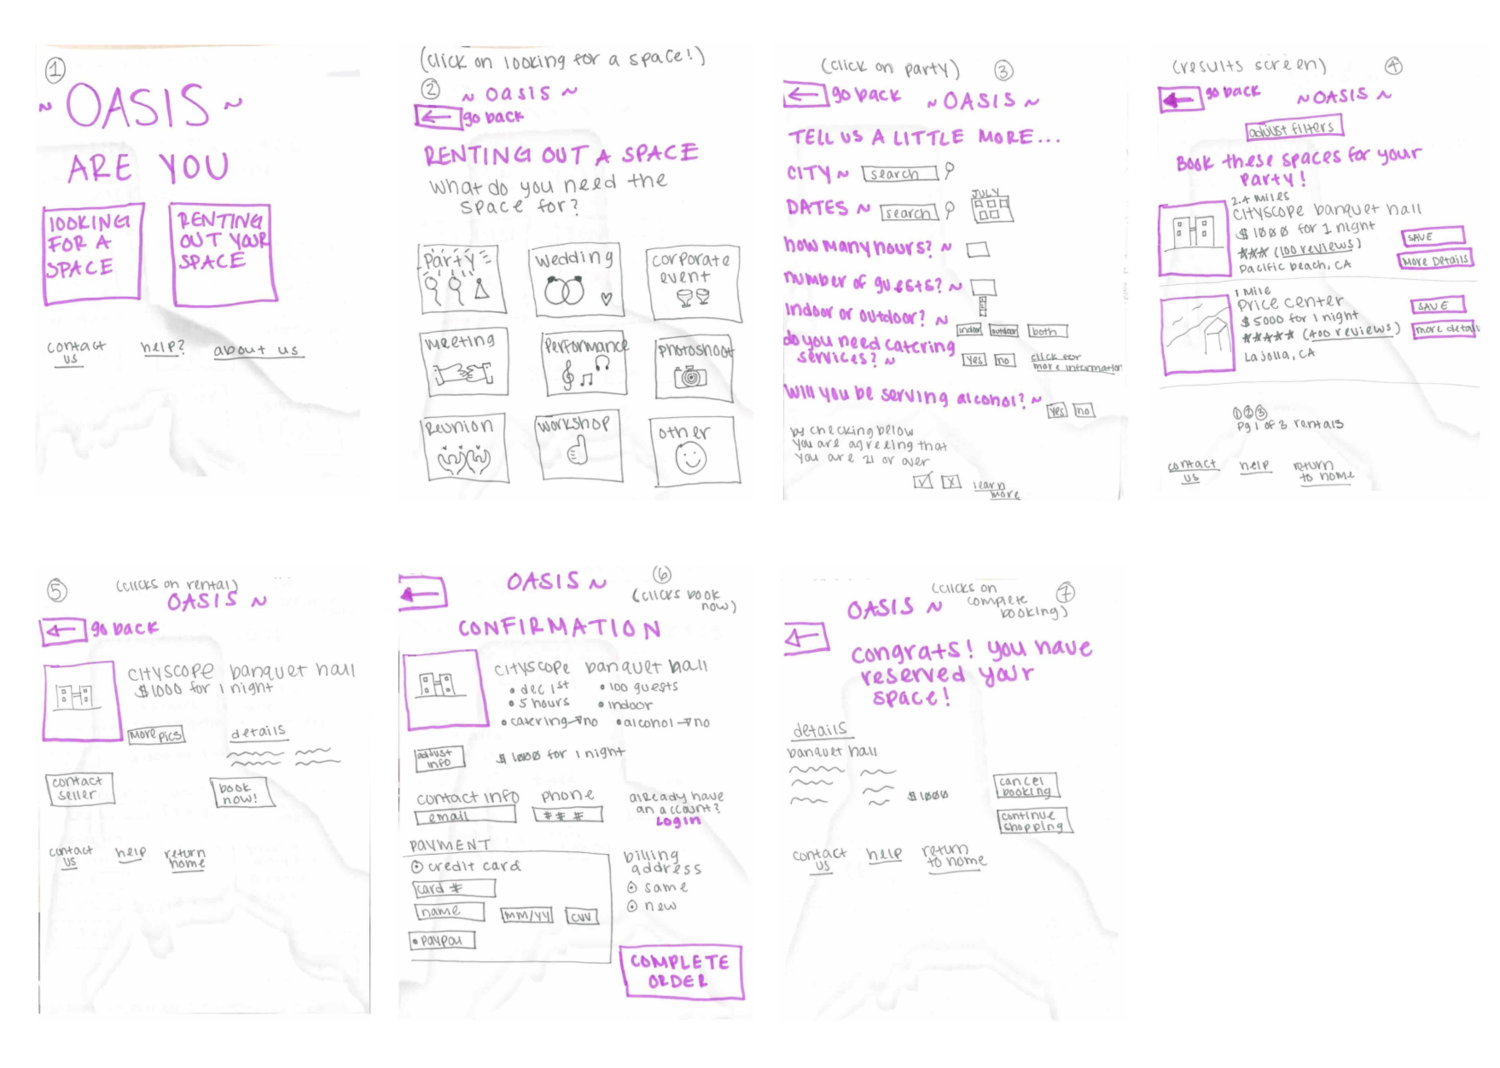 ①
~ OASIS ~
ARE YOU
LOOKING
FOR A
SPACE
RENTING
OUT YOUR
SPACE
contact
us
help?
about us
(click on looking for a space!)
②
~ OASIS ~
← go back
RENTING OUT A SPACE
What do you need the
space for?
Party
wedding
corporate
event
meeting
Performance
photoshoot
Reunion
workshop
other
(click on party)
③
← go back
~ OASIS ~
TELL US A LITTLE MORE...
CITY ~
search
DATES ~
search
JULY
how many hours? ~
number of guests? ~
Indoor or outdoor? ~
indoor
outdoor
both
do you need catering
services? ~
yes
no
click for
more information
Will you be serving alcohol? ~
yes
no
by checking below
you are agreeing that
you are 21 or over
✓
x
learn
more
(results screen)
④
← go back
~ OASIS ~
adjust filters
Book these spaces for your
party!
2.4 miles
cityscope banquet hall
$1000 for 1 night
*** (100 reviews)
Pacific beach, CA
SAVE
More Details
1 Mile
Price center
$5000 for 1 night
***** (400 reviews)
La Jolla, CA
SAVE
more detail
①②③
Pg 1 of 3 rentals
contact
us
help
return
to home
⑤
(clicks on rental)
OASIS ~
← go back
cityscope banquet hall
$1000 for 1 night
More pics
details
contact
seller
book
now!
contact
us
help
return
home
←
OASIS ~
⑥
(clicks book
now)
CONFIRMATION
cityscope banquet hall
• dec 1st
• 100 guests
• 5 hours
• indoor
• catering → no
• alcohol → no
adjust
info
$1000 for 1 night
contact info
email
phone
# # #
already have
an account?
Login
PAYMENT
credit card
card #
name
mm/yy
cvv
• paypal
billing
address
same
new
COMPLETE
ORDER
(clicks on
complete
booking)
⑦
OASIS ~
←
congrats! you have
reserved your
space!
details
banquet hall
$1000
cancel
booking
continue
shopping
contact
us
help
return
to home